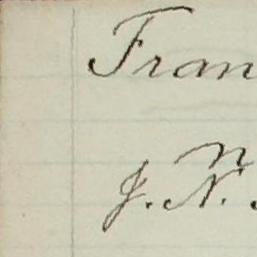 Fran
J. N.